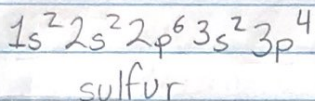 1s²2s²2p⁶3s²3p⁴
sulfur